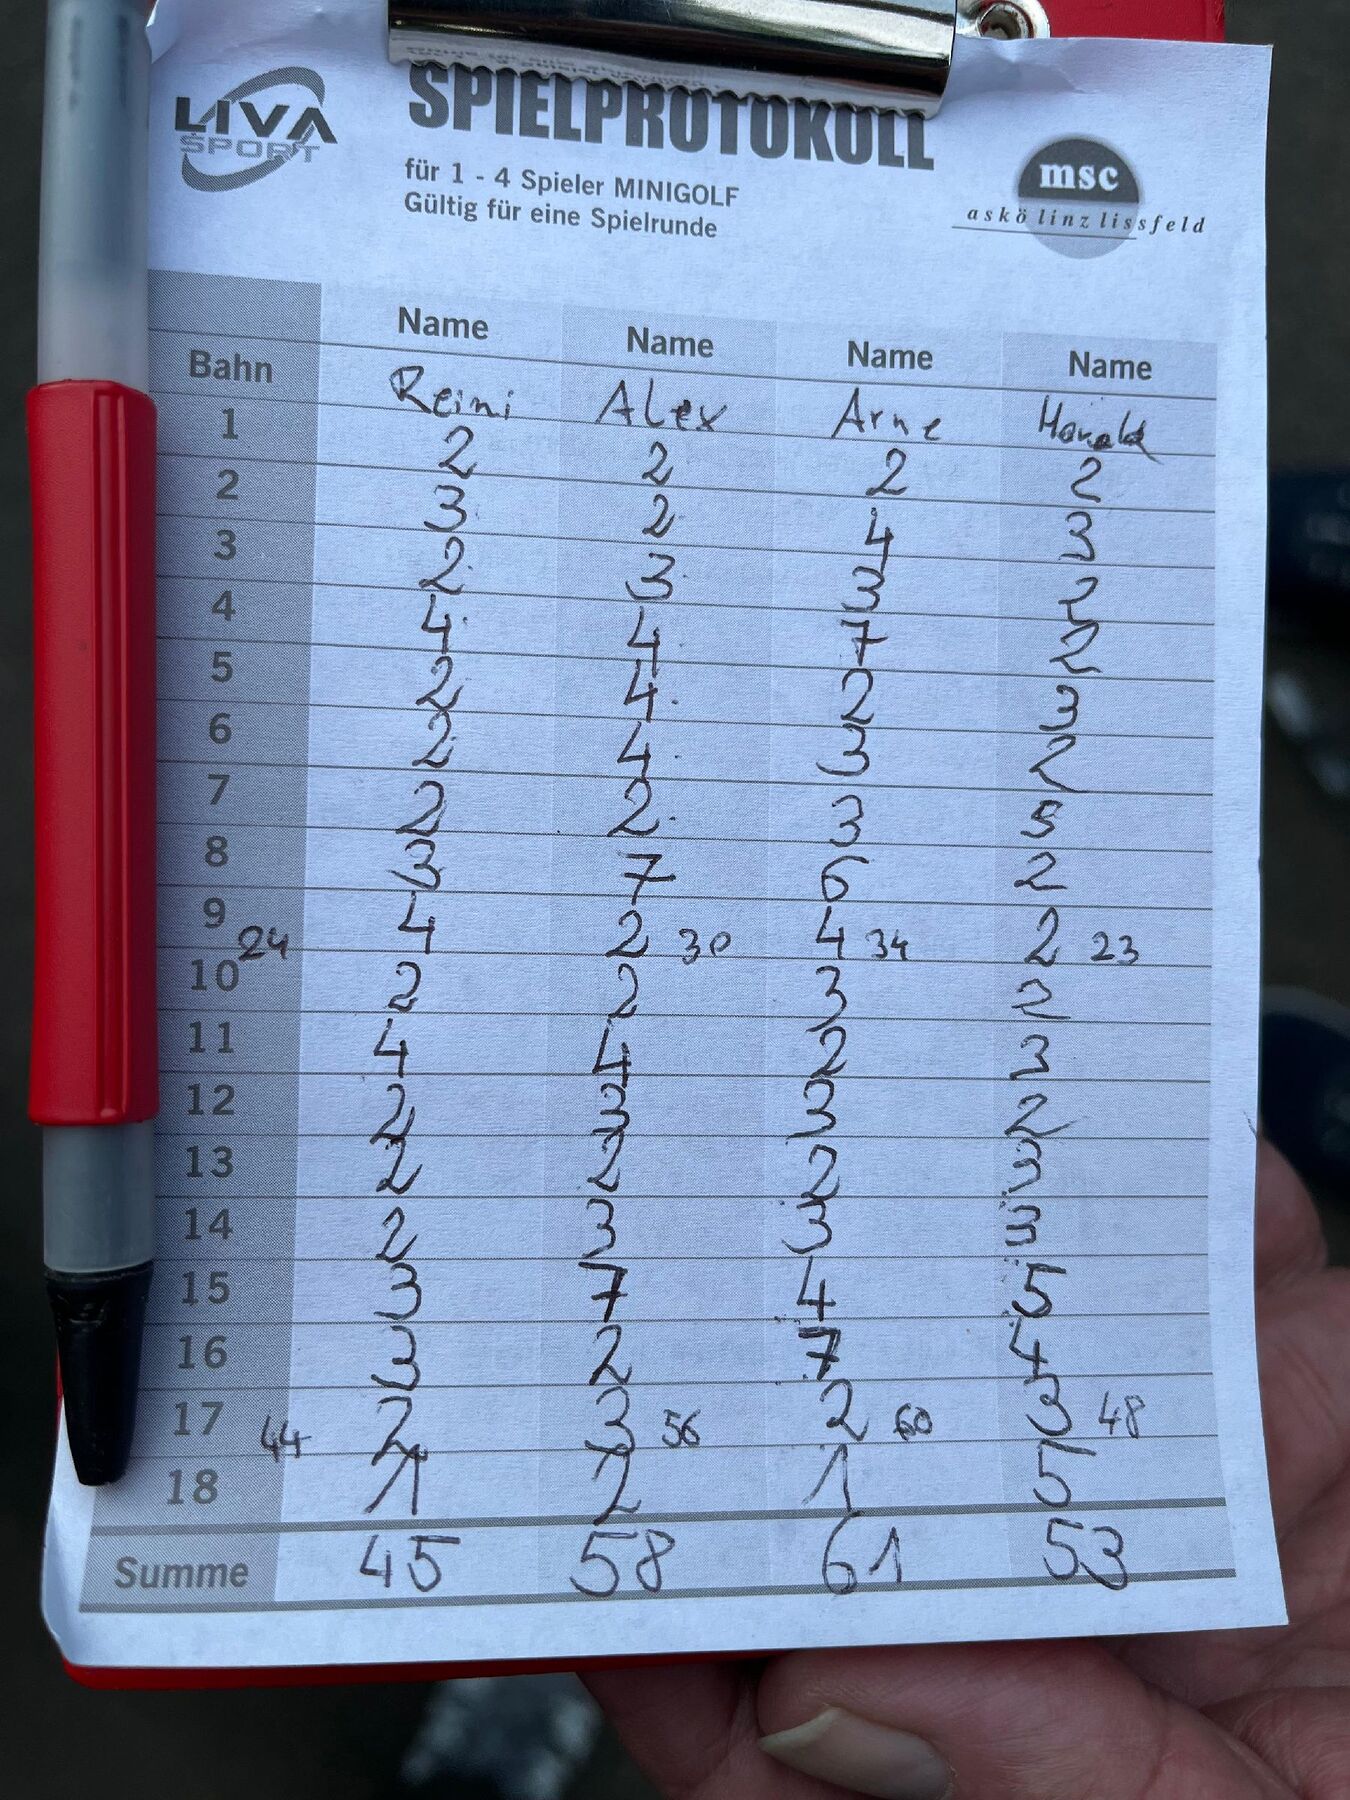 LIVA
SPORT
SPIELPROTOKOLL
für 1 - 4 Spieler MINIGOLF
Gültig für eine Spielrunde
msc
askö linz lissfeld
Name Name Name Name
Bahn Reini Alex Arne Harald
1 2 2 2 2
2 3 2 4 3
3 2 3 3 2
4 4 4 7 2
5 2 4 2 3
6 2 4 3 2
7 2 2 3 5
8 3 7 6 2
9 24 4 2 30 4 34 2 23
10 2 2 3 2
11 4 4 2 3
12 2 3 3 2
13 2 2 2 3
14 2 3 3 3
15 3 7 4 5
16 3 2 7 4
17 44 2 3 56 2 60 3 48
18 1 2 1 5
Summe 45 58 61 53